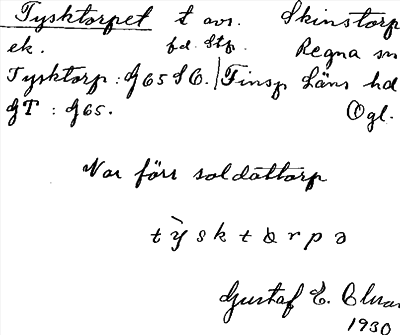 Tysktorpet t avs. Skinstorp
ek. fd. Stp. Regna sn
Tysktorp : G65 SO. Finsp Läns hd
GT : G65. Ögl.
Var förr soldattorp
tỳsktɔrpə
Gustaf E.
1930